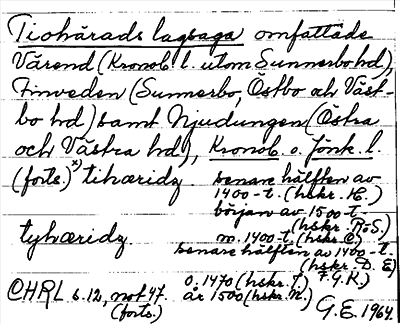 Tiohärads lagsaga omfattade
Värend (Kronob. l. utom Sunnerbo hd),
Finveden (Sunnerbo, Östbo och Väst-
bo hd) samt Njudungen (Östra
och Västra hd), Kronob. o. Jönk. l.
(forts.) x) tihæridz senare hälften av
1400-t. (hskr. H.)
början av 1500-t.
(hskr. R-S.)
tyhæridz m. 1400-t. (hskr. C.)
senare hälften av 1400-t.
(hskr. D. E)
F. G. K.)
CHRL s. 12, not 47. o. 1470 (hskr. I.)
(forts.) år 1500 (hskr. N.)
G. E. 1964